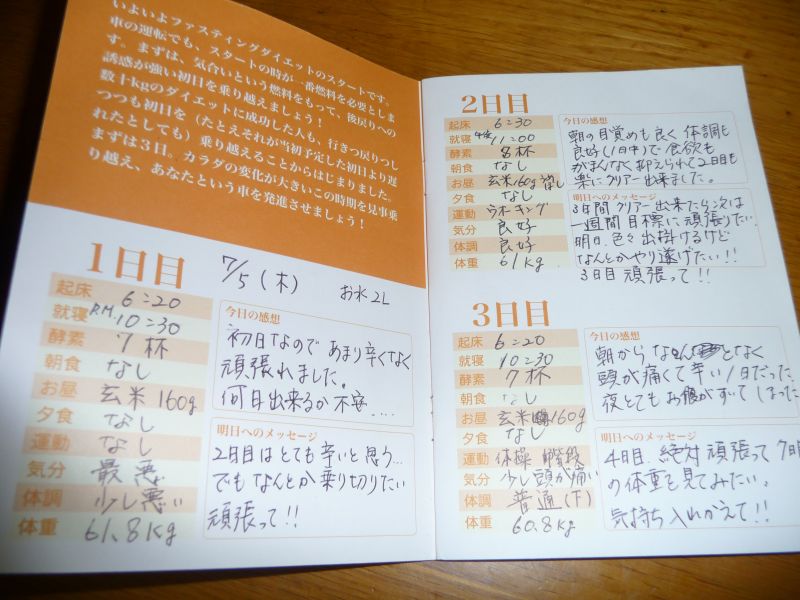 いよいよファスティングダイエットのスタートです。
車の運転でも、スタートの時が一番燃料を必要としま
す。まずは、気合いという燃料をもって、後戻りへの
誘惑が強い初日を乗り越えましょう！
数十kgのダイエットに成功した人も、行きつ戻りつし
つつも初日を（たとえそれが当初予定した初日より遅
れたとしても）乗り越えることからはじまりました。
まずは3日。カラダの変化が大きいこの時期を見事乗
り越え、あなたという車を発進させましょう！
1日目
7/5（木）
お水2L
起床 6:20
就寝 P.M.10:30
酵素 7杯
朝食 なし
お昼 玄米160g
夕食 なし
運動 なし
気分 最悪
体調 少し悪い
体重 61.8kg
今日の感想
初日なので あまり辛くなく
頑張れました。
何日出来るか不安....
明日へのメッセージ
2日目はとても辛いと思う...
でもなんとか乗り切りたい
頑張って!!
2日目
起床 6:30
就寝 11:00
酵素 8杯
朝食 なし
お昼 玄米160g
夕食 なし
運動 ウォーキング
気分 良好
体調 良好
体重 61kg
今日の感想
朝の目覚めも良く 体調も
良好(1日中)で 食欲も
がまんなく抑えられて2日目も
楽にクリアー出来ました。
明日へのメッセージ
3日間クリアー出来たら次は
一週間目標に頑張りたい。
明日、色々出掛けるけど
なんとかやり遂げたい!!
3日目 頑張って!!
3日目
起床 6:20
就寝 10:30
酵素 7杯
朝食 なし
お昼 玄米160g
夕食 なし
運動 体操 階段
気分 少し頭が痛い
体調 普通(下)
体重 60.8kg
今日の感想
朝からなんとなく
頭が痛くて辛い1日だった
夜とてもお腹がすいてしまった
明日へのメッセージ
4日目、絶対頑張って7日目
の体重を見てみたい。
気持ち入れかえて!!